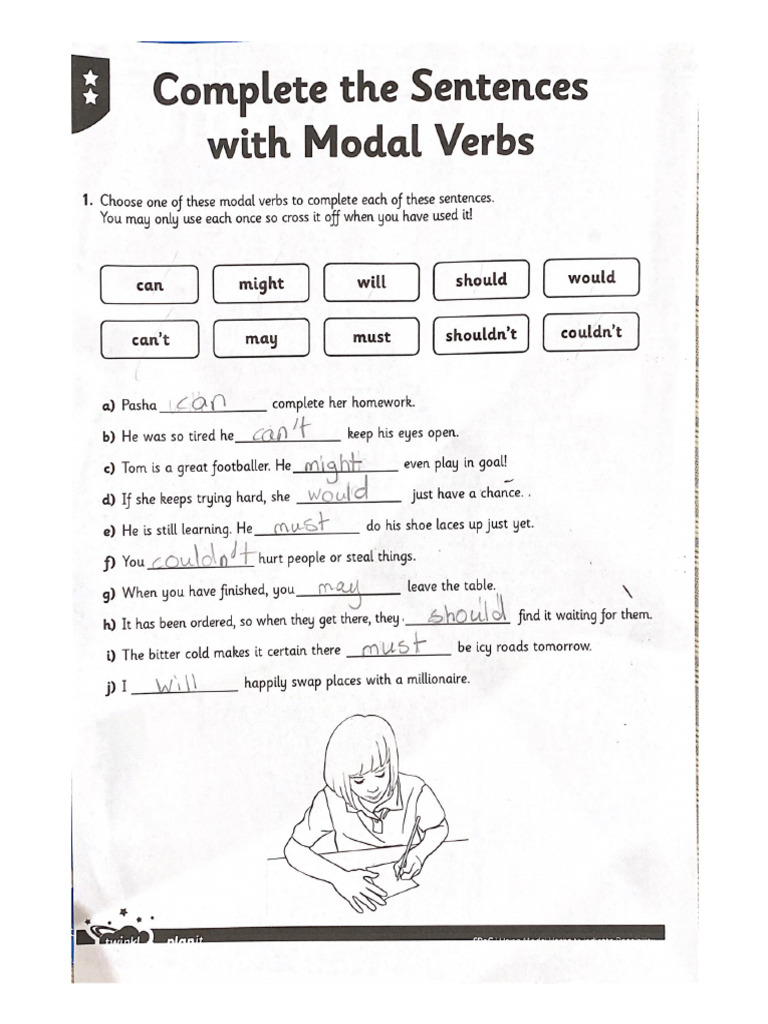 Complete the Sentences
with Modal Verbs
1. Choose one of these modal verbs to complete each of these sentences.
You may only use each once so cross it off when you have used it!
can might will should would
can't may must shouldn't couldn't
a) Pasha can complete her homework.
b) He was so tired he can't keep his eyes open.
c) Tom is a great footballer. He might even play in goal!
d) If she keeps trying hard, she would just have a chance. .
e) He is still learning. He must do his shoe laces up just yet.
f) You couldn't hurt people or steal things.
g) When you have finished, you may leave the table.
h) It has been ordered, so when they get there, they should find it waiting for them.
i) The bitter cold makes it certain there must be icy roads tomorrow.
j) I will happily swap places with a millionaire.
twinkl planit